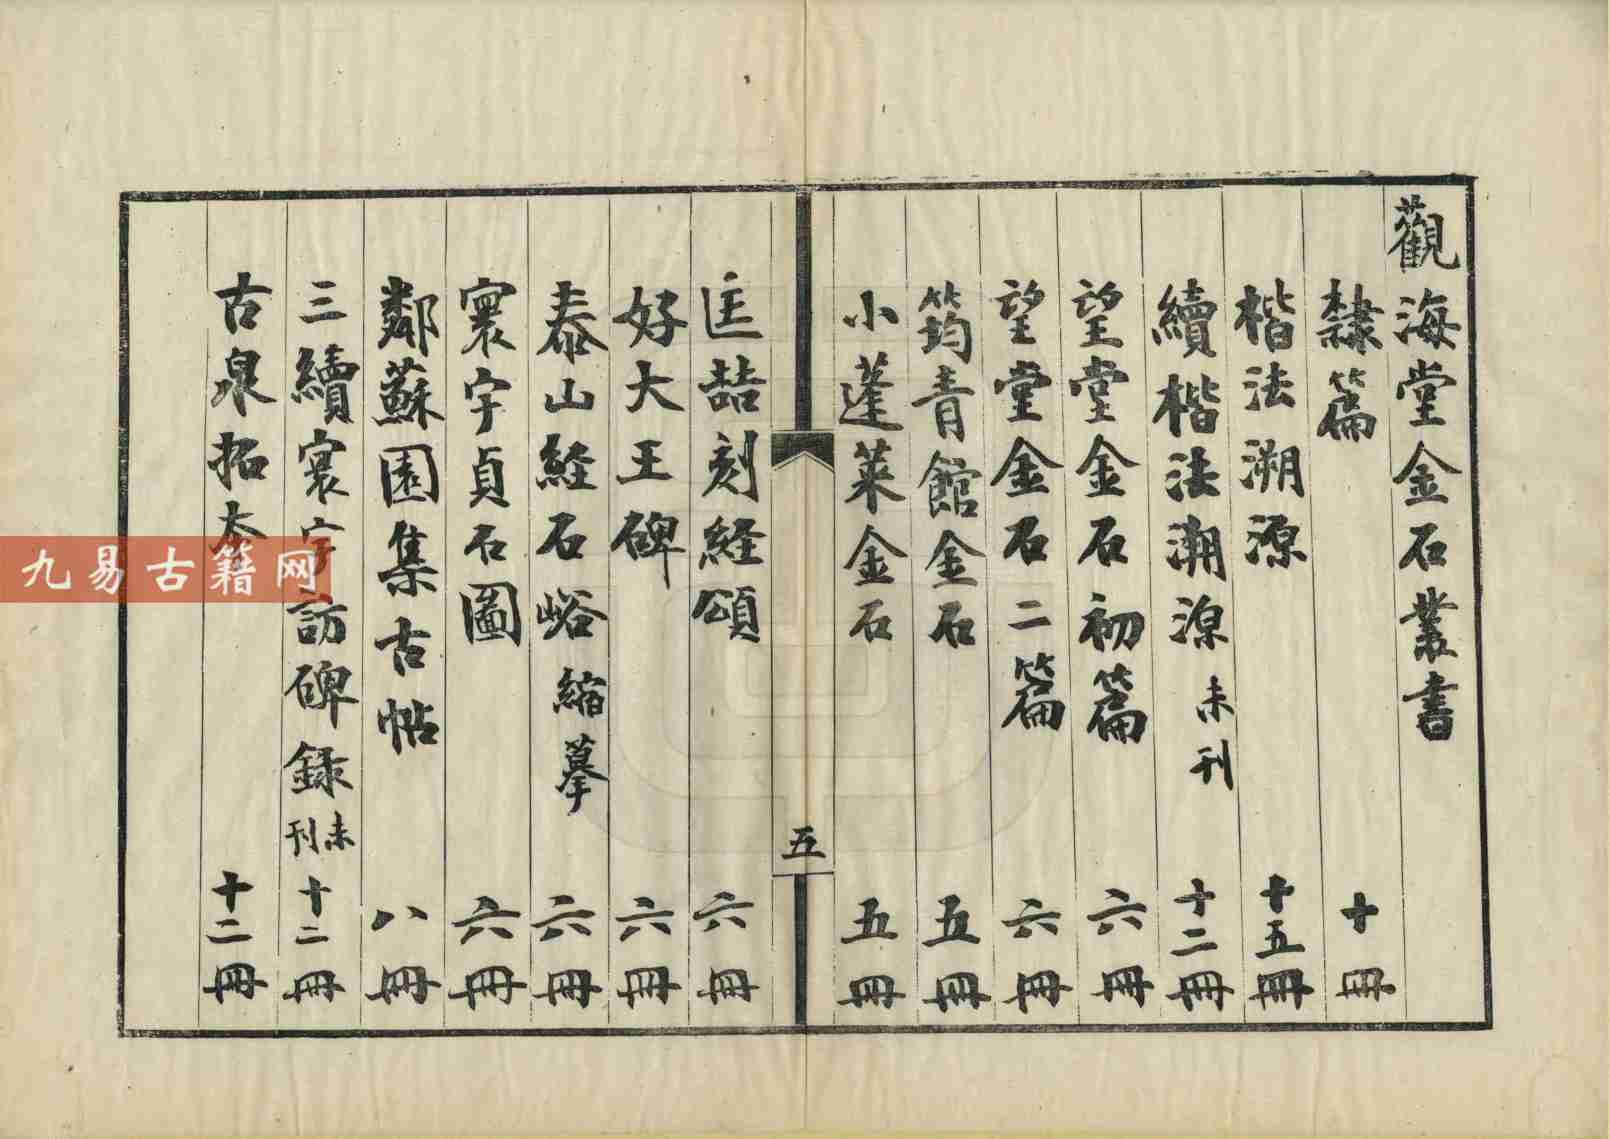 觀海堂金石叢書
隸篇 十冊
楷法溯源 十五冊
續楷法溯源 未刊 十二冊
望堂金石初篇 六冊
望堂金石二篇 六冊
筠青館金石 五冊
小蓬萊金石 五冊
五
匡喆刻経頌 六冊
好大王碑 六冊
泰山経石峪 縮摹 六冊
寰宇貞石圖 六冊
鄰蘇園集古帖 八冊
三續寰宇訪碑録 未刊 十二冊
古泉拓本 十二冊
九易古籍网